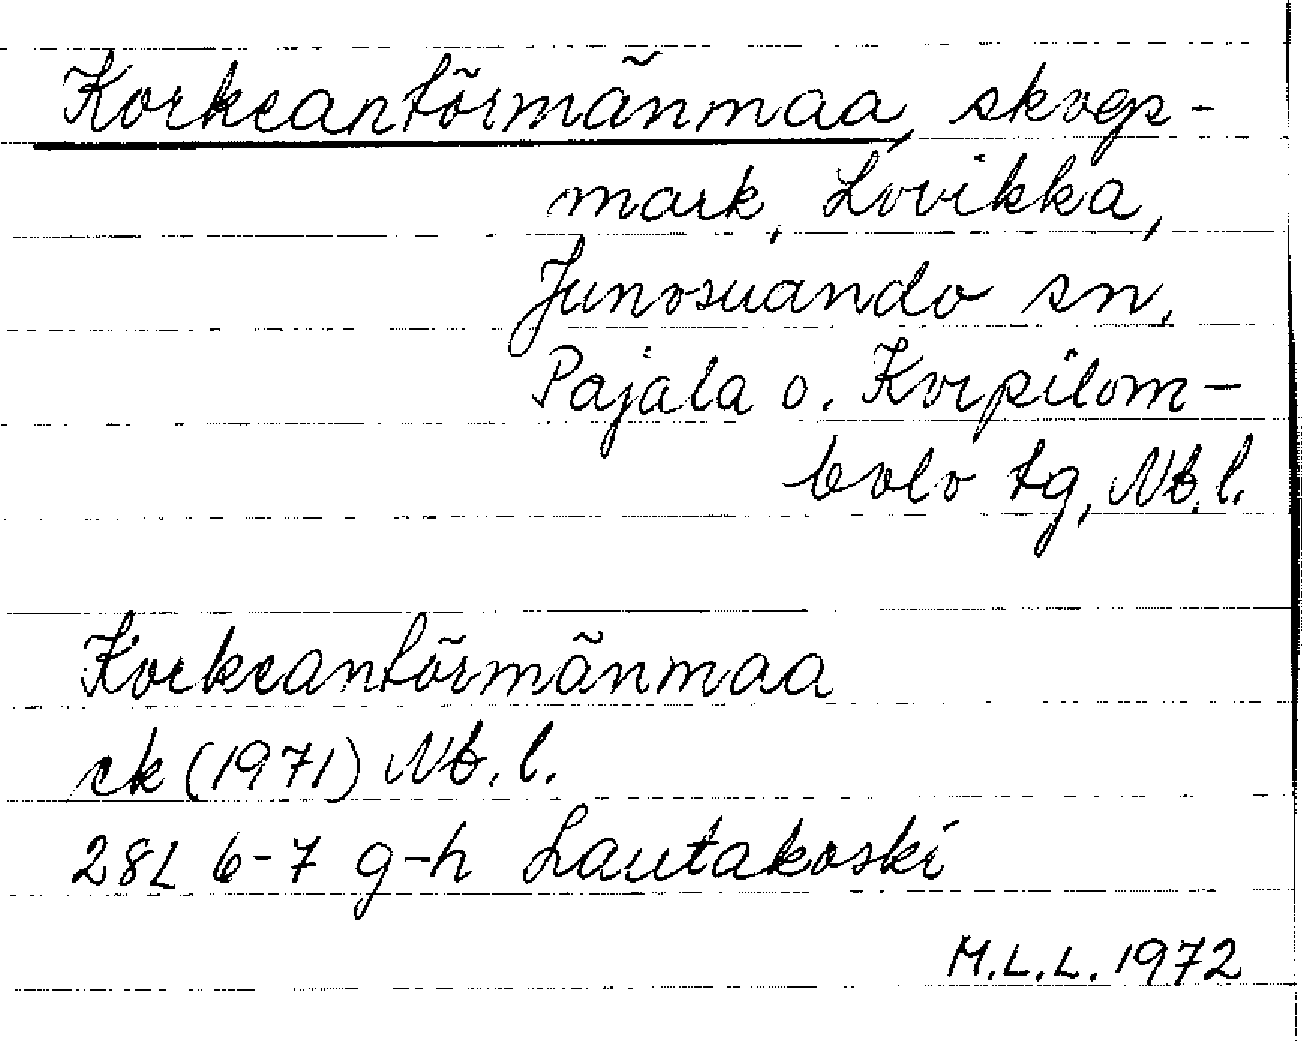 Korkeantörmänmaa, skogs-
mark, Lovikka,
Junosuando sn,
Pajala o. Korpilom-
bolo tg, Nb. l.
Korkeantörmänmaa
ek (1971) Nb. l.
28L 6-7 g-h Lautakoski
M.L.L. 1972